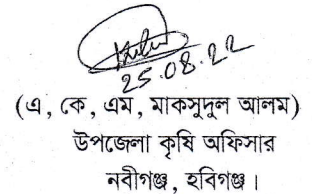 25.08.22
(এ, কে, এম, মাকসুদুল আলম)
উপজেলা কৃষি অফিসার
নবীগঞ্জ, হবিগঞ্জ।